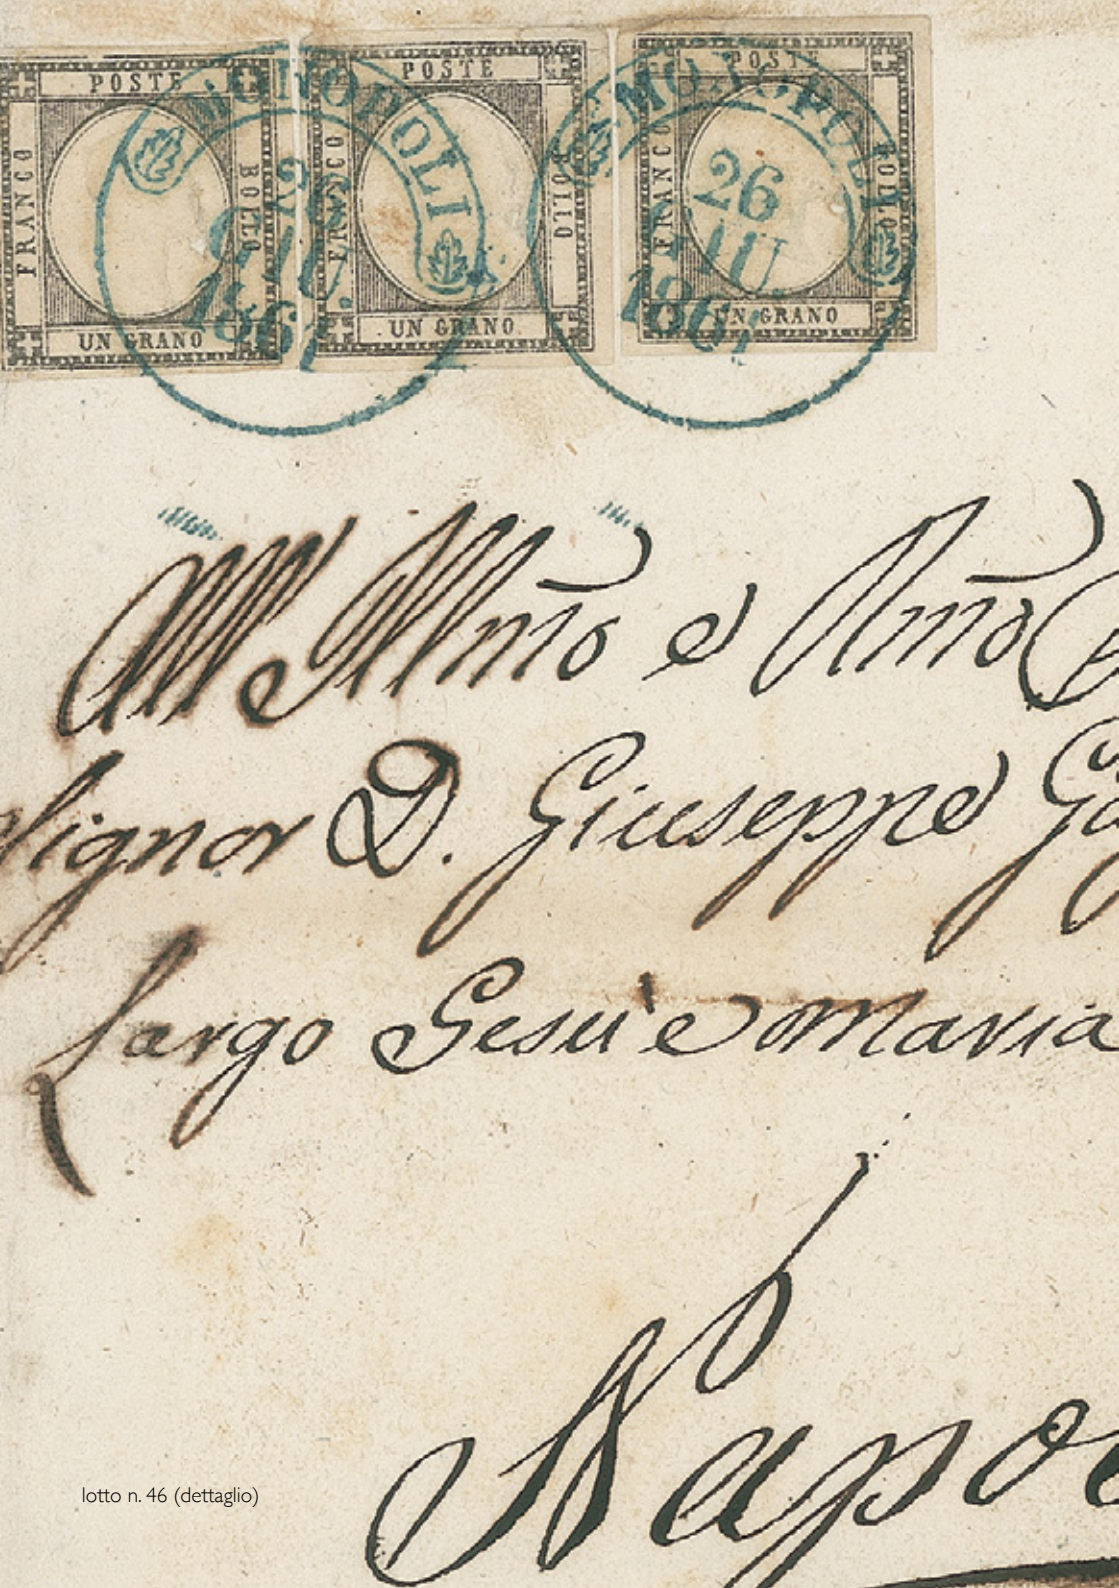 POSTE
FRANCO
BOLLO
UN GRANO
POSTE
FRANCO
BOLLO
UN GRANO
POSTE
FRANCO
BOLLO
UN GRANO
MONOPOLI
26
GIU.
1861
MONOPOLI
26
GIU.
1861
All' Illmo e
Signor D. Giuseppe
Largo Gesù e Maria
lotto n. 46 (dettaglio)